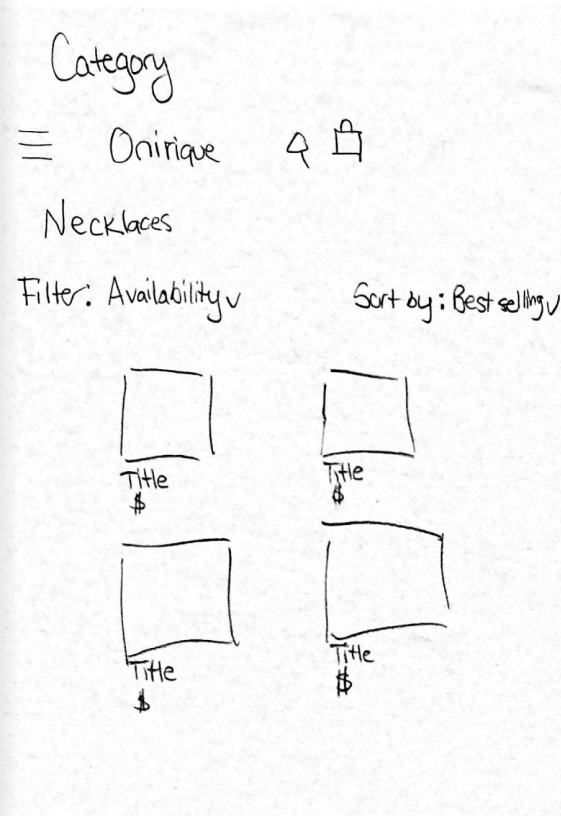 Category
Onirique
Necklaces
Filter: Availability Sort by: Best selling
Title Title
$ $
Title Title
$ $